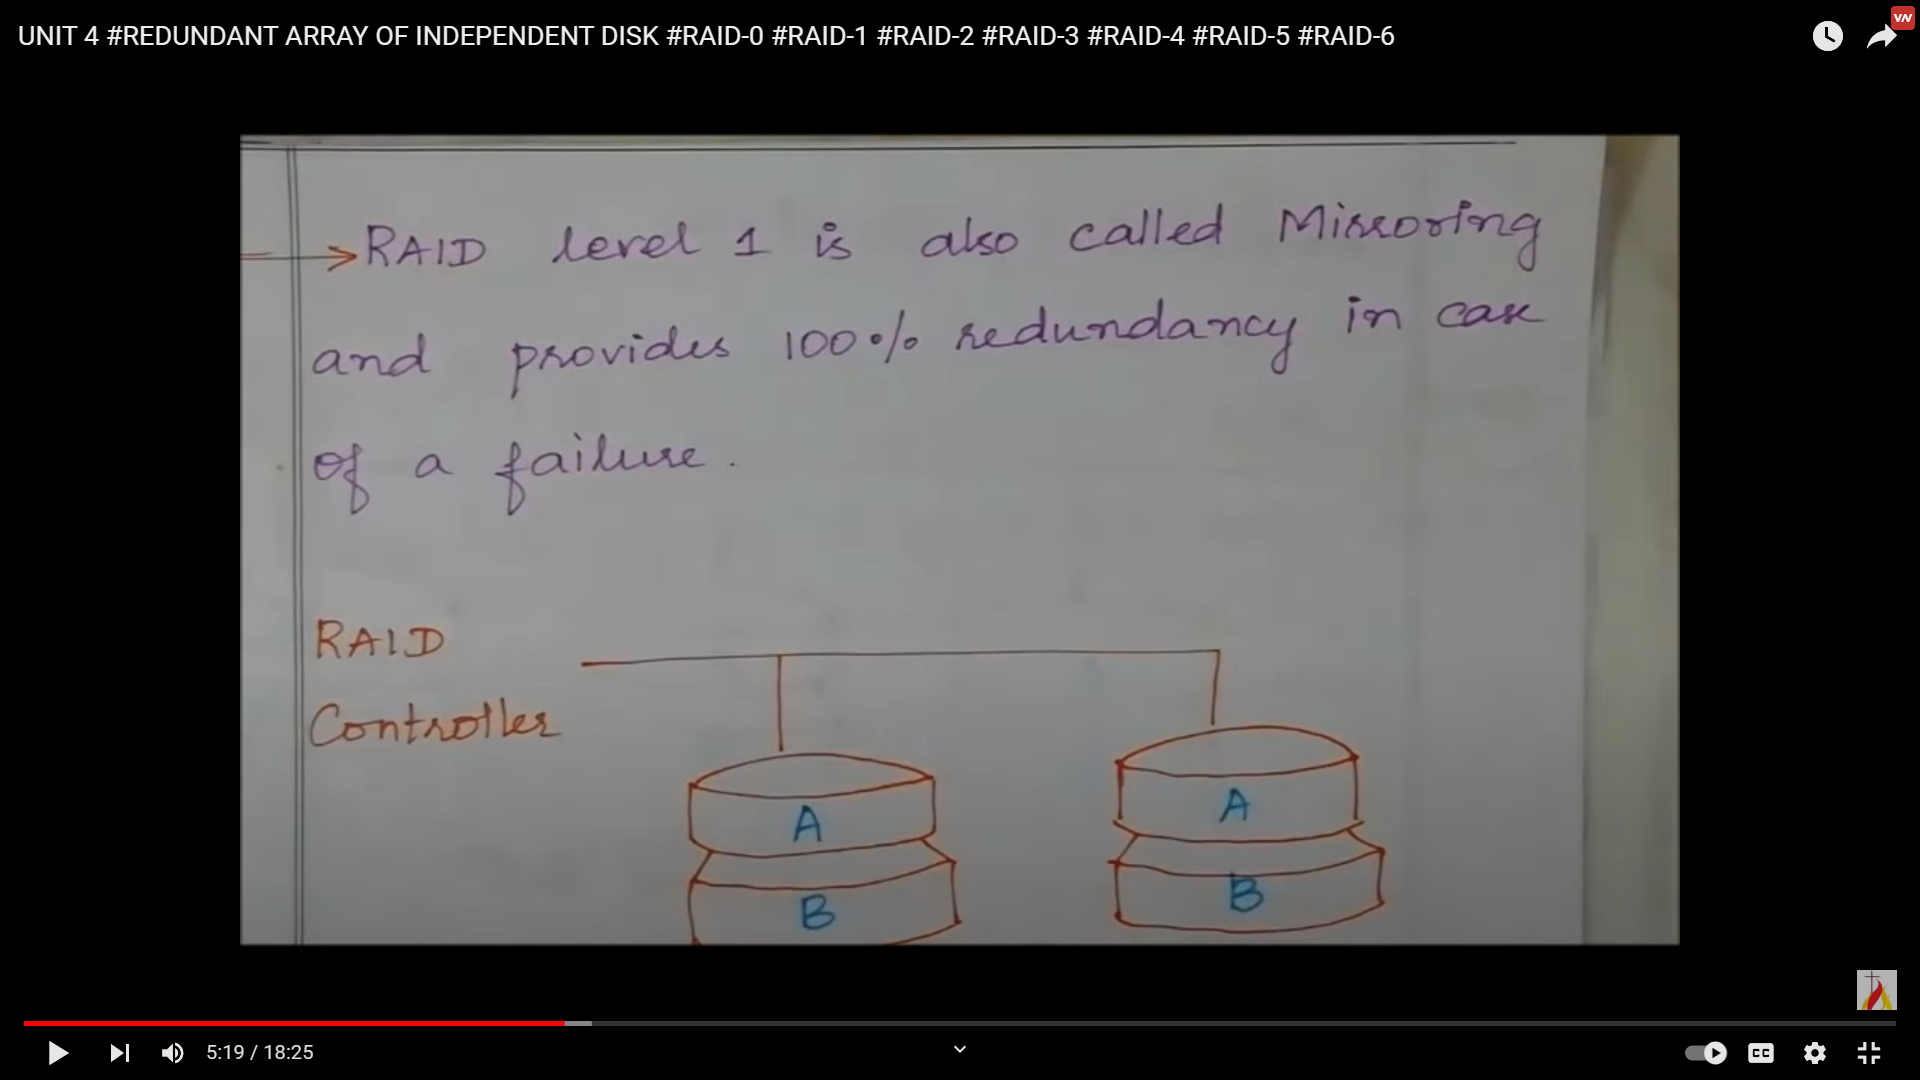 UNIT 4 #REDUNDANT ARRAY OF INDEPENDENT DISK #RAID-0 #RAID-1 #RAID-2 #RAID-3 #RAID-4 #RAID-5 #RAID-6
VN
RAID level 1 is also called Mirroring
and provides 100% redundancy in case
of a failure.
RAID
Controller
A
A
B
B
5:19 / 18:25
CC